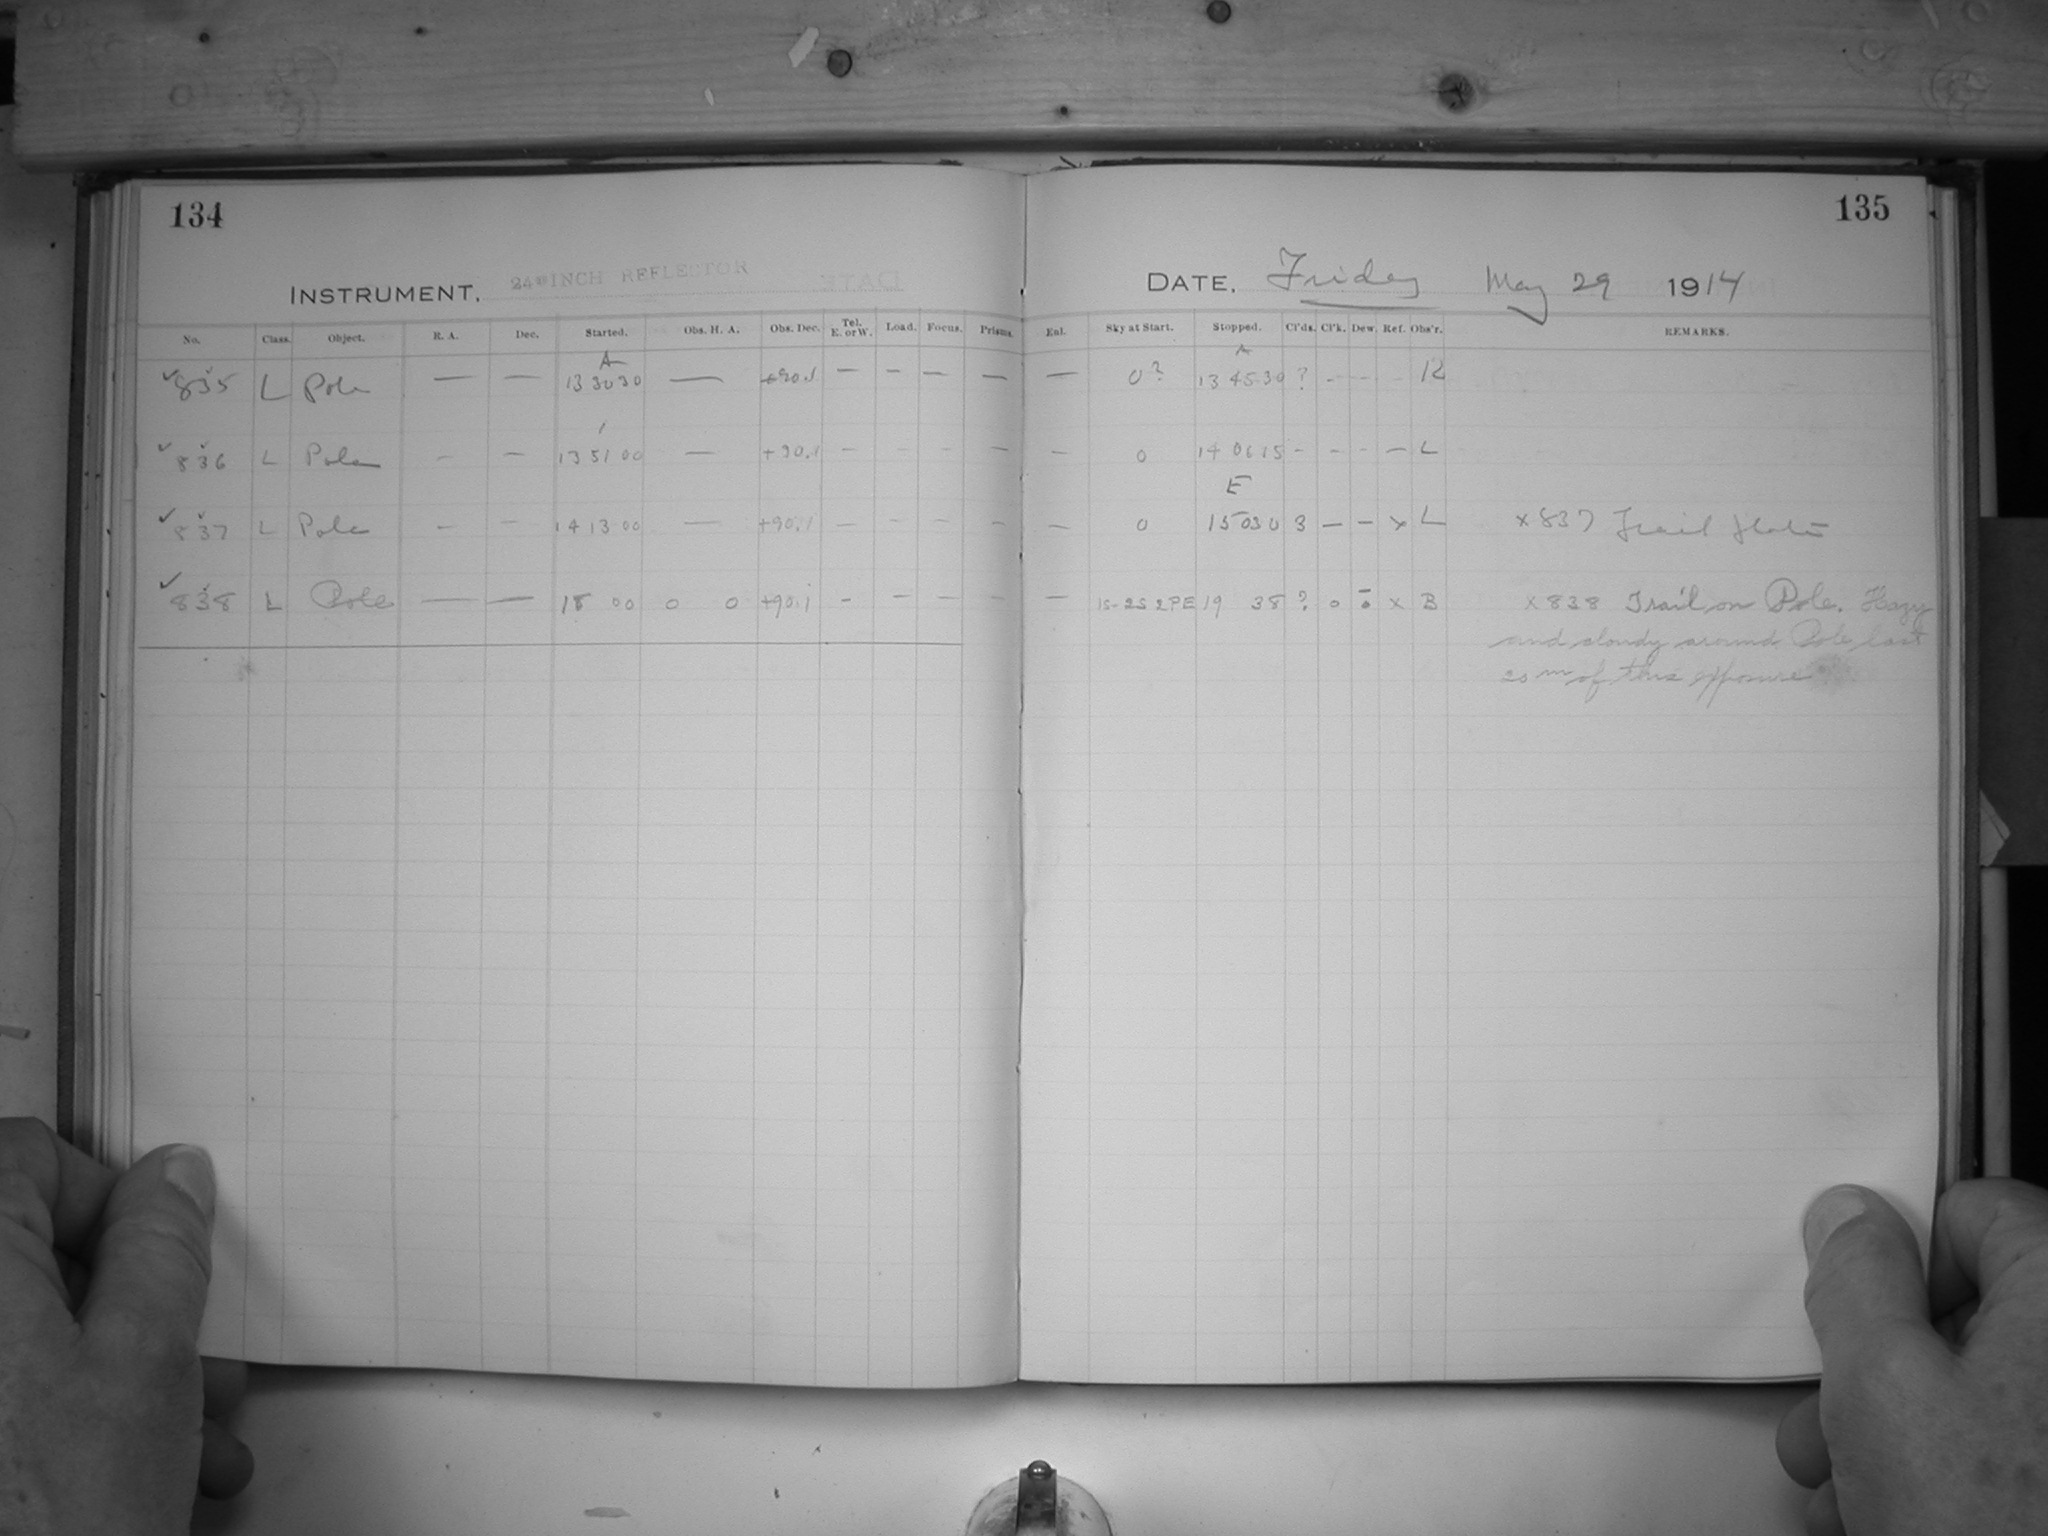 134
135
INSTRUMENT, 24-INCH REFLECTOR
DATE, Friday May 29 1914
No. Class. Object. R. A. Dec. Started. Obs. H. A. Obs. Dec. Tel. E. or W. Load. Focus. Prisms. Enl. Sky at Start. Stopped. Cl'ds. Cl'k. Dew. Ref. Obs'r. REMARKS.
A A
✓835 L Pole — — 13 30 30 — +90.1 — — — — — 0? 13 45 30 ? - - - R
✓836 L Pole — — 13 51 00 — +90.1 — — — — — 0 14 06 15 - - - — L
E
✓837 L Pole — — 14 13 00 — +90.1 — — — — — 0 15 03 0 3 — — x L x 837 Trail
✓838 L Pole — — 18 00 0 0 +90.1 — — — — — 15-25 2PE 19 38 ? 0 x B x 838 Trail on Pole. Hazy
and cloudy around Pole last
20 m of this exposure